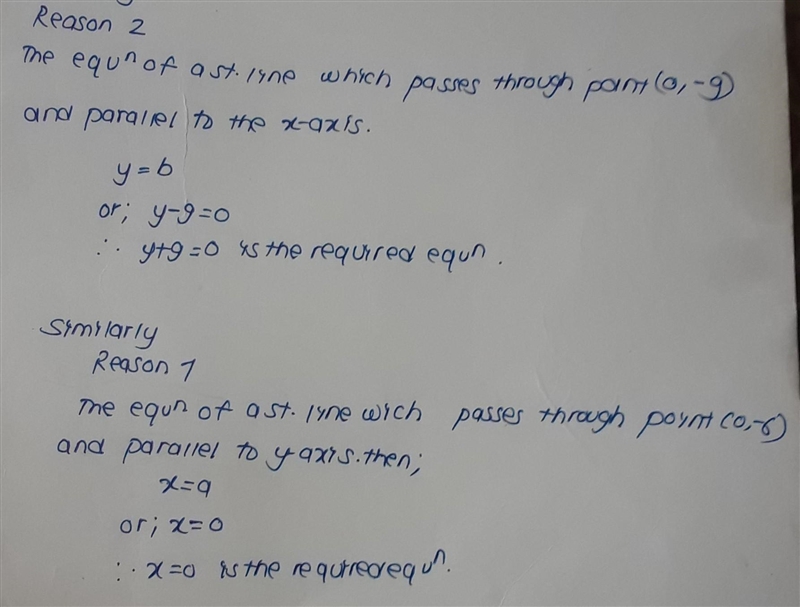 Reason 2
The equn of a st. line which passes through point (0, -9)
and parallel to the x-axis.
y = b
or; y-9=0
∴ y+9=0 is the required equn.
Similarly
Reason 1
The equn of a st. line wich passes through point (0,-6)
and parallel to y axis. then;
x=a
or; x=0
∴ x=0 is the required equn.